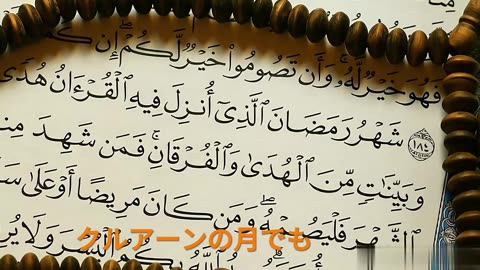 فَهُوَ خَيْرٌ لَّهُۥ ۚ وَأَن تَصُومُوا۟ خَيْرٌ لَّكُمْ ۖ إِن كُ
شَهْرُ رَمَضَانَ ٱلَّذِىٓ أُنزِلَ فِيهِ ٱلْقُرْءَانُ هُدًى ١٨٤
وَبَيِّنَٰتٍ مِّنَ ٱلْهُدَىٰ وَٱلْفُرْقَانِ ۚ فَمَن شَهِدَ مِن
ٱلشَّهْرَ فَلْيَصُمْهُ ۖ وَمَن كَانَ مَرِيضًا أَوْ عَلَىٰ سَ
بِكُمُ ٱلْيُسْرَ وَلَا يُرِ
クルアーンの月でも